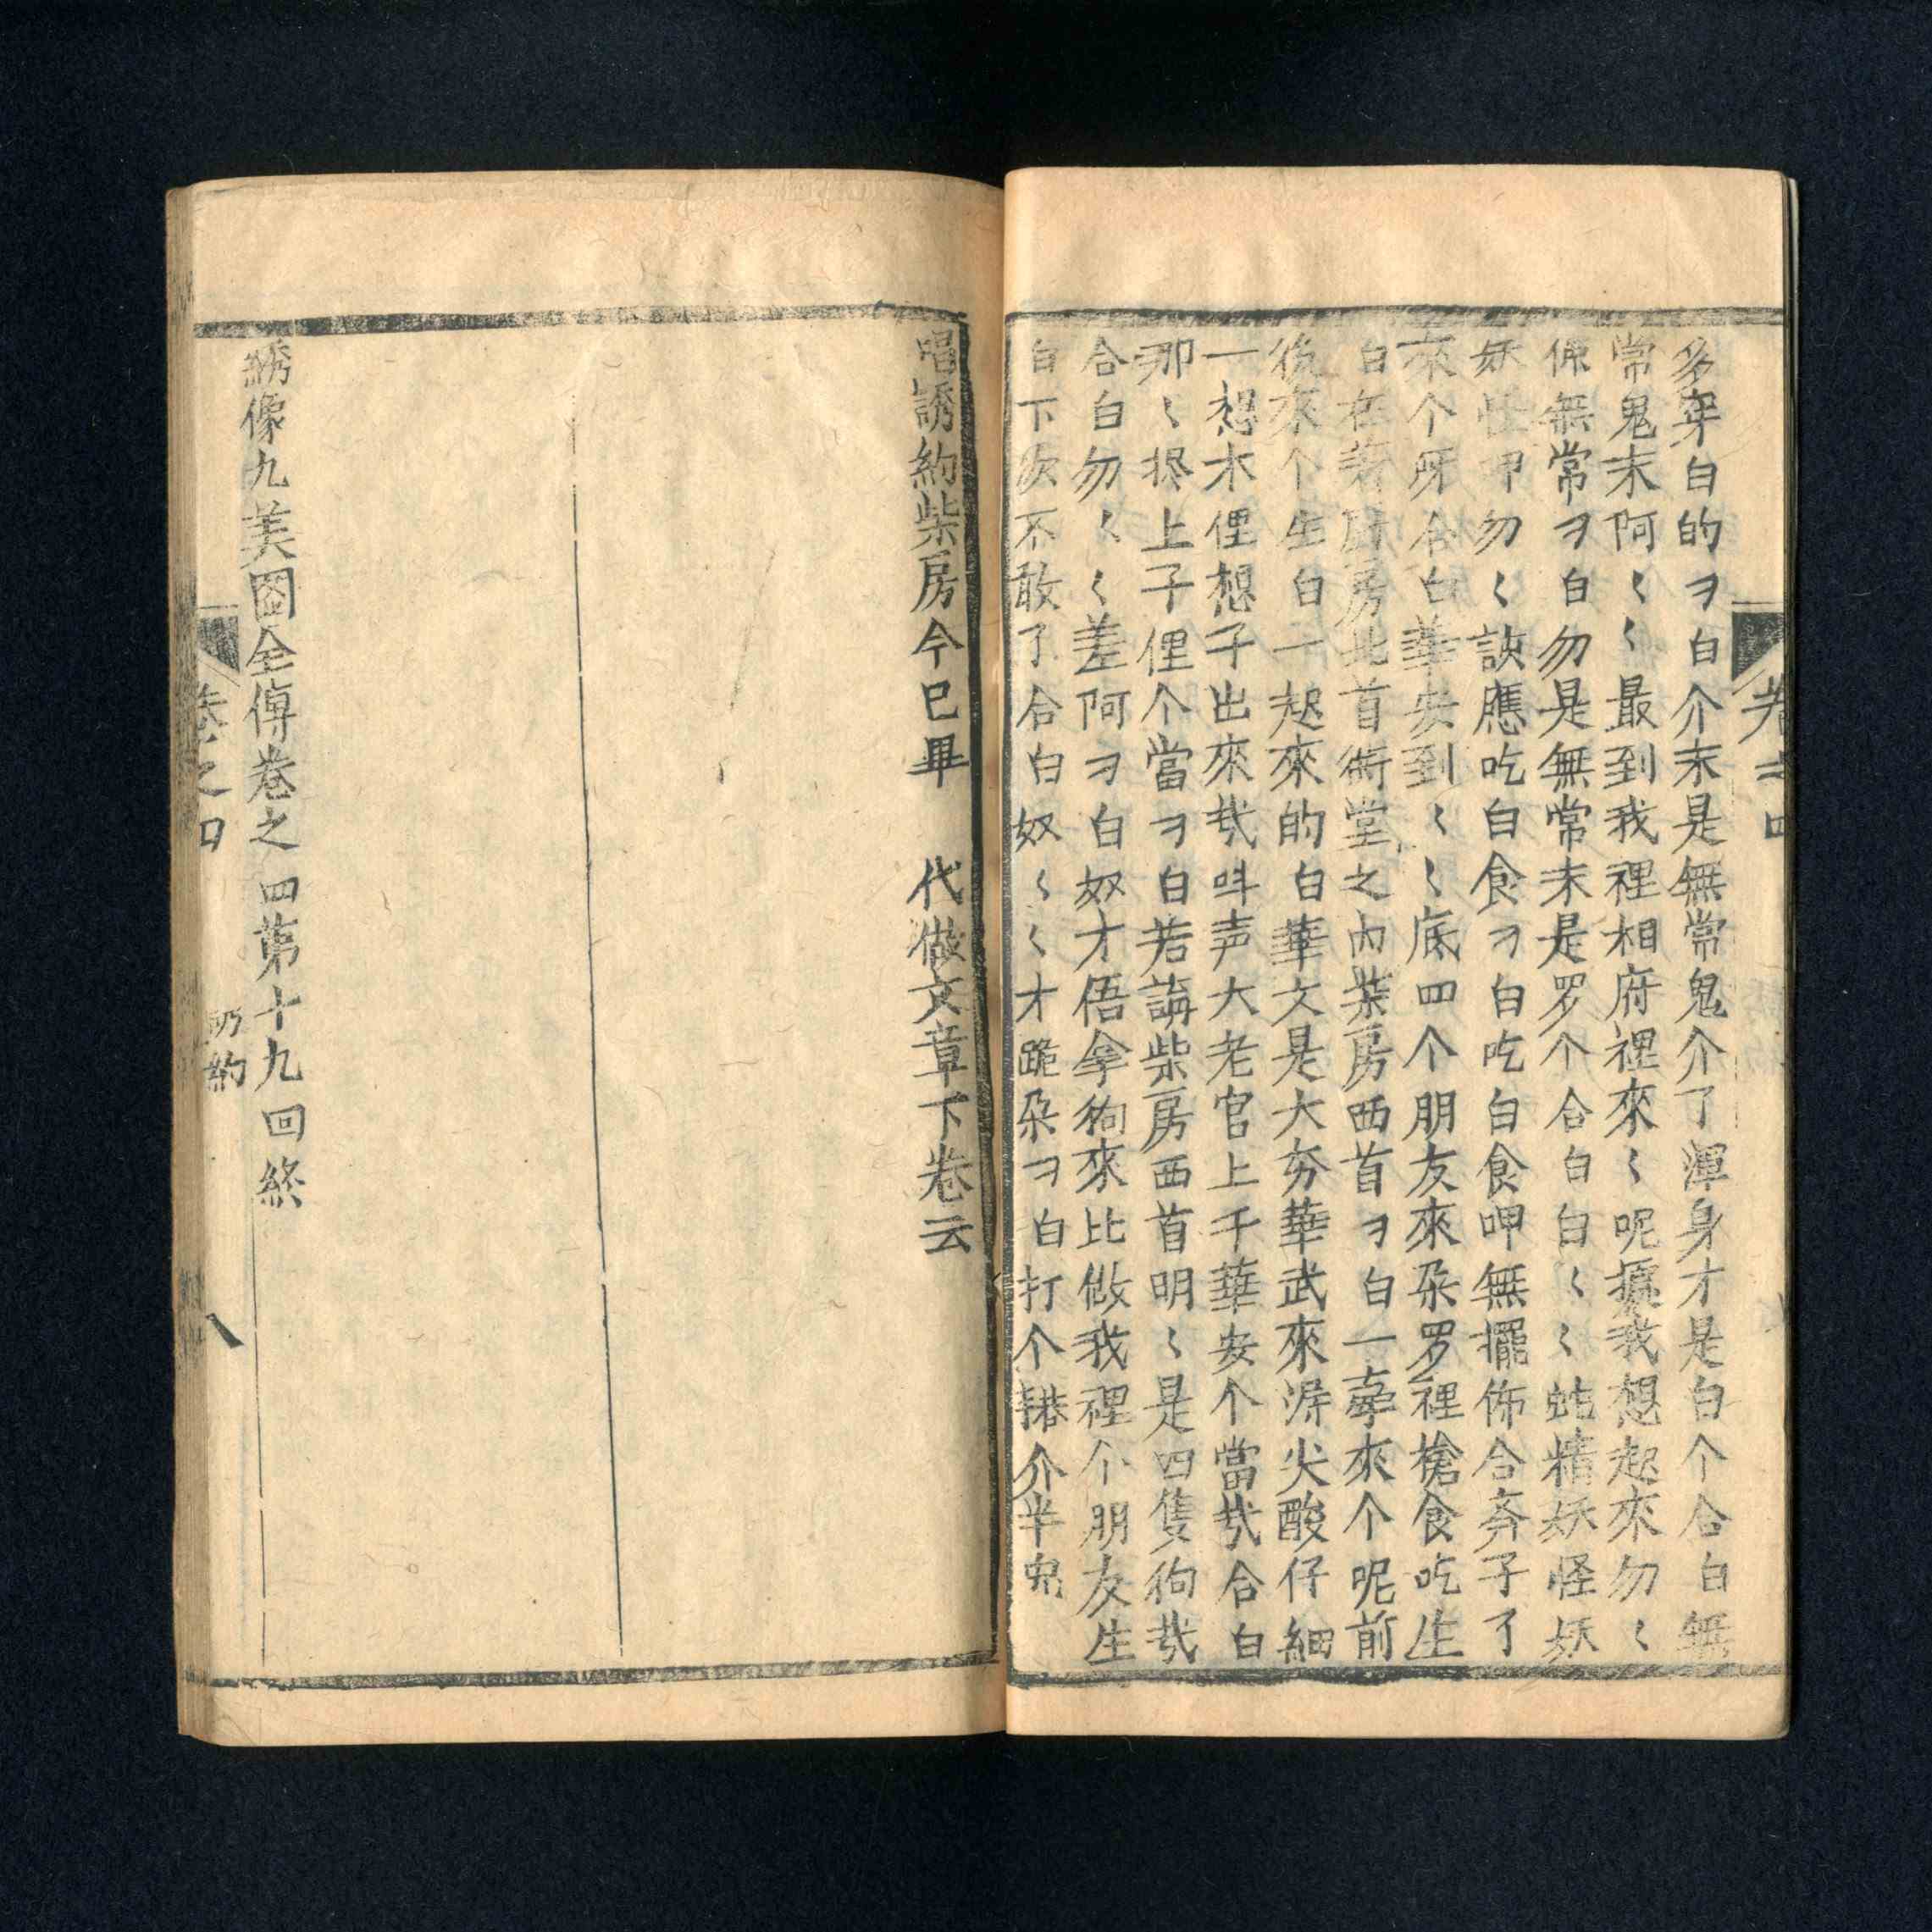 卷之四
多年白的ヲ白个末是無常鬼介了渾身才是白个合白無
常鬼末阿〻〻最到我裡相府裡來〻呢搷我想起來勿〻
係無常ヲ白勿是無常末是罗个合白白〻〻蛇精妖怪妖
妖怪呷勿〻訣應吃白食ヲ白吃白食呷無擺佈合斉子了
來个呀合白華安到〻〻底四个朋友來朶罗裡搶食吃生
白在著厨房北首衖堂之內柴房西首ヲ白一牽來个呢前
後來个生白一起來的白華文是大夯華武來滛尖酸仔細
一想木俚想子出來哉呌声大老官上千華安个當哉合白
那〻搽上子俚个當ヲ白若講柴房西首明〻是四隻狗哉
合白勿〻〻差阿ヲ白奴才俉拿狗來比做我裡个朋友生
白下次不敢了合白奴〻〻才跪朶ヲ白打个䦧介半鬼
唱誘約柴房今巳畢　代做文章下卷云
綉像九美图全傳卷之四第十九回終
卷之四　誘約